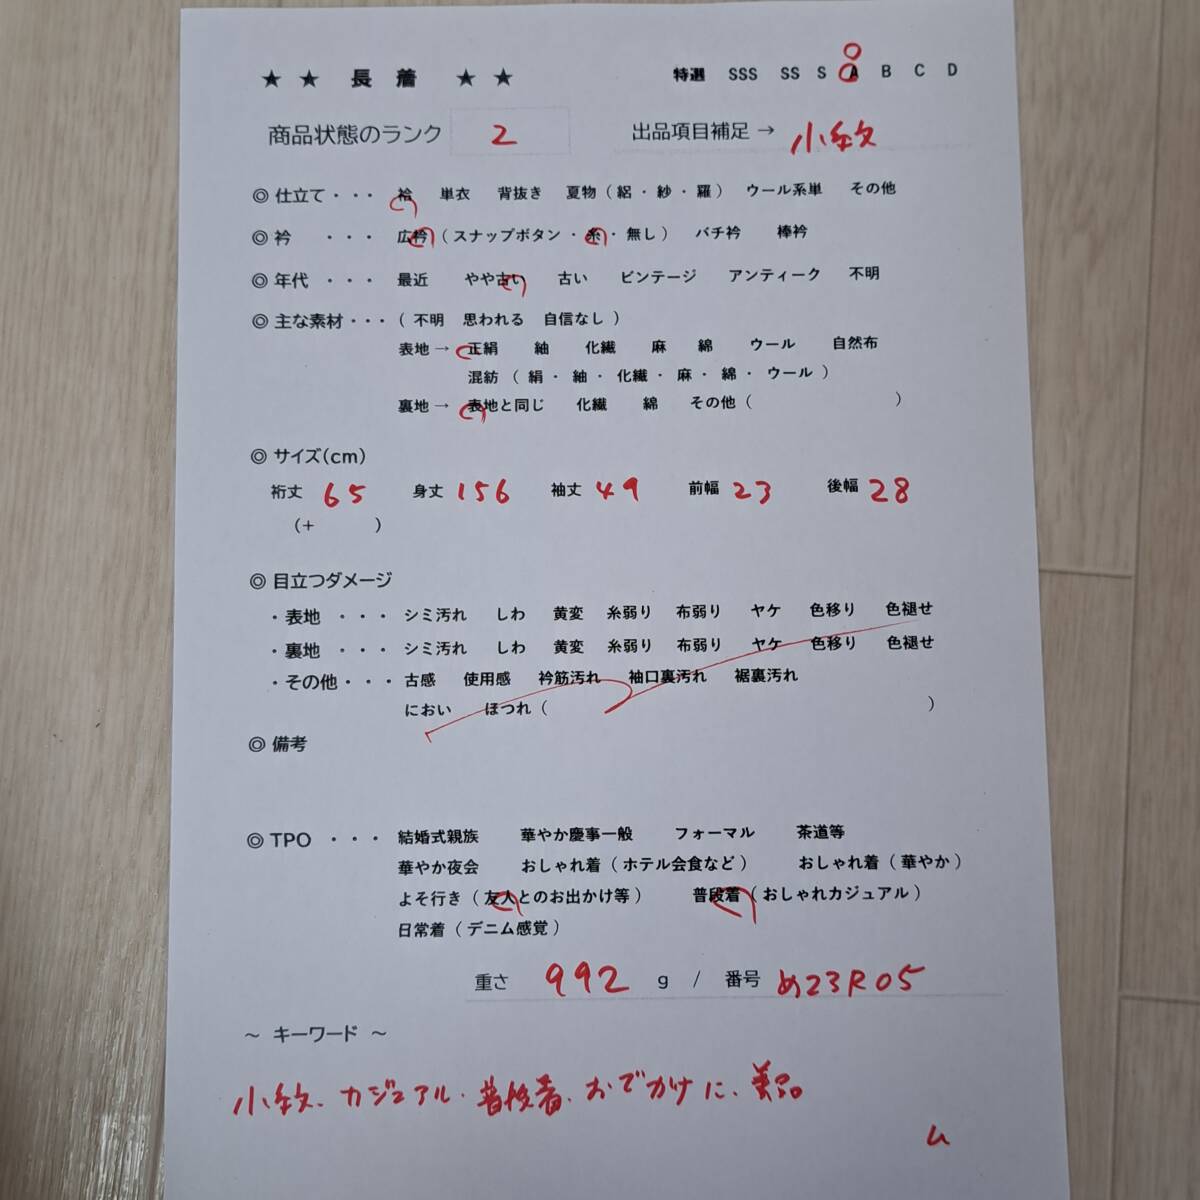 ★ ★ 長 着 ★ ★ 特選 SSS SS S A B C D
商品状態のランク 2 出品項目補足→ 小紋
◎ 仕立て・・・ 袷 単衣 背抜き 夏物（絽・紗・羅） ウール系単 その他
◎ 衿 ・・・ 広衿（スナップボタン・糸・無し） バチ衿 棒衿
◎ 年代 ・・・ 最近 やや古い 古い ビンテージ アンティーク 不明
◎ 主な素材・・・（不明 思われる 自信なし）
表地→ 正絹 紬 化繊 麻 綿 ウール 自然布
混紡（絹・紬・化繊・麻・綿・ウール）
裏地→ 表地と同じ 化繊 綿 その他（ ）
◎ サイズ(cm)
裄丈 65 身丈 156 袖丈 49 前幅 23 後幅 28
(+ )
◎ 目立つダメージ
・表地 ・・・ シミ汚れ しわ 黄変 糸弱り 布弱り ヤケ 色移り 色褪せ
・裏地 ・・・ シミ汚れ しわ 黄変 糸弱り 布弱り ヤケ 色移り 色褪せ
・その他・・・ 古感 使用感 衿筋汚れ 袖口裏汚れ 裾裏汚れ
におい ほつれ（ ）
◎ 備考
◎ TPO ・・・ 結婚式親族 華やか慶事一般 フォーマル 茶道等
華やか夜会 おしゃれ着（ホテル会食など） おしゃれ着（華やか）
よそ行き（友人とのお出かけ等） 普段着（おしゃれカジュアル）
日常着（デニム感覚）
重さ 992 g / 番号 め23R05
～ キーワード ～
小紋、カジュアル、普段着、おでかけに、美品
ム